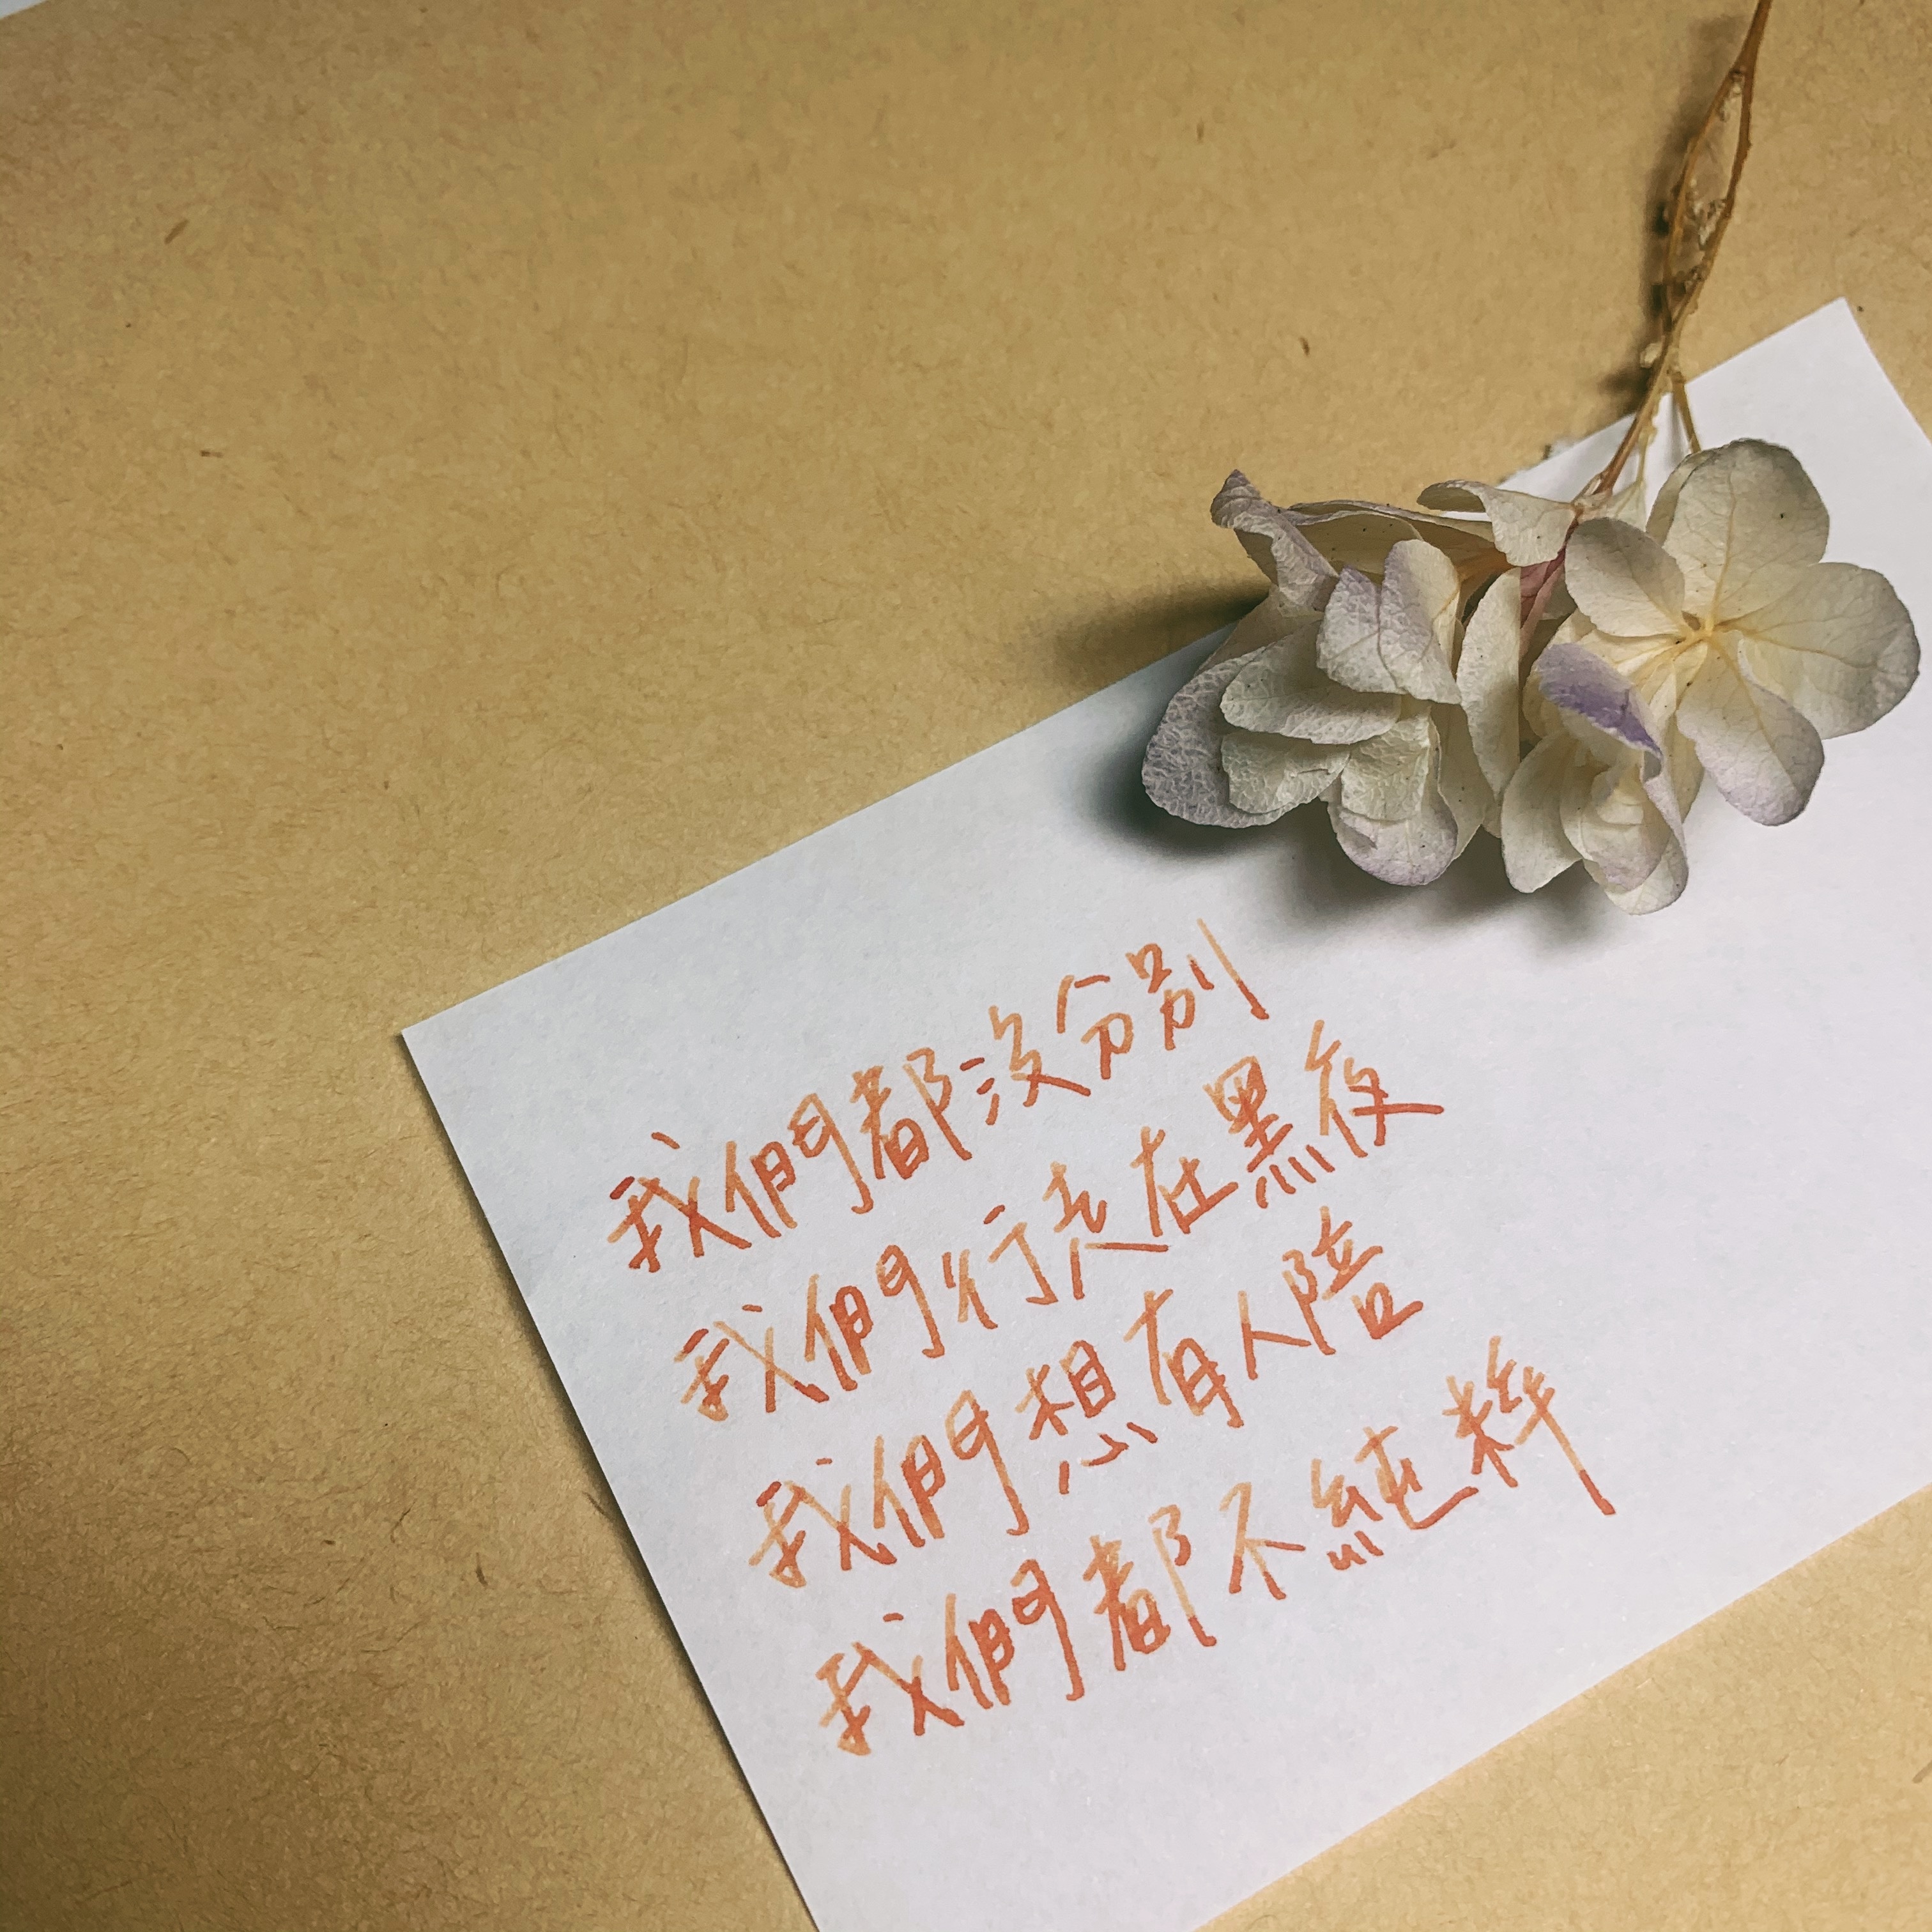 我們都沒分別
我們行走在黑夜
我們想有人陪
我們都不純粹